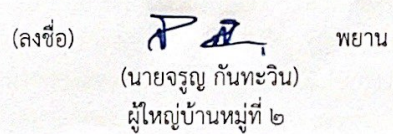 (ลงชื่อ) พยาน
(นายจรูญ กันทะวิน)
ผู้ใหญ่บ้านหมู่ที่ ๒